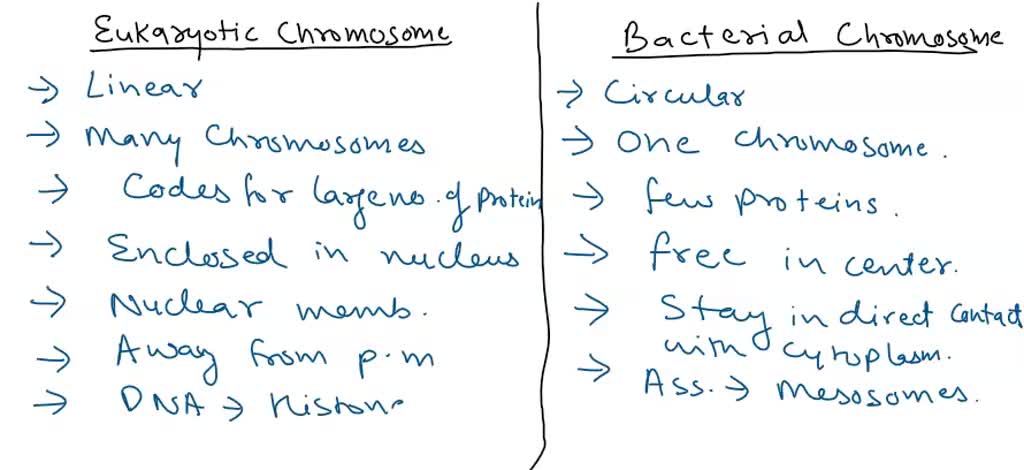 Eukaryotic Chromosome
→ Linear
→ Many Chromosomes
→ Codes for large no. of protein
→ Enclosed in nucleus
→ Nuclear memb.
→ Away from p.m
→ DNA → Histone
Bacterial Chromosome
→ Circular
→ One chromosome.
→ few proteins.
→ free in center.
→ Stay in direct contact
with cytoplasm.
→ Ass. → Mesosomes.